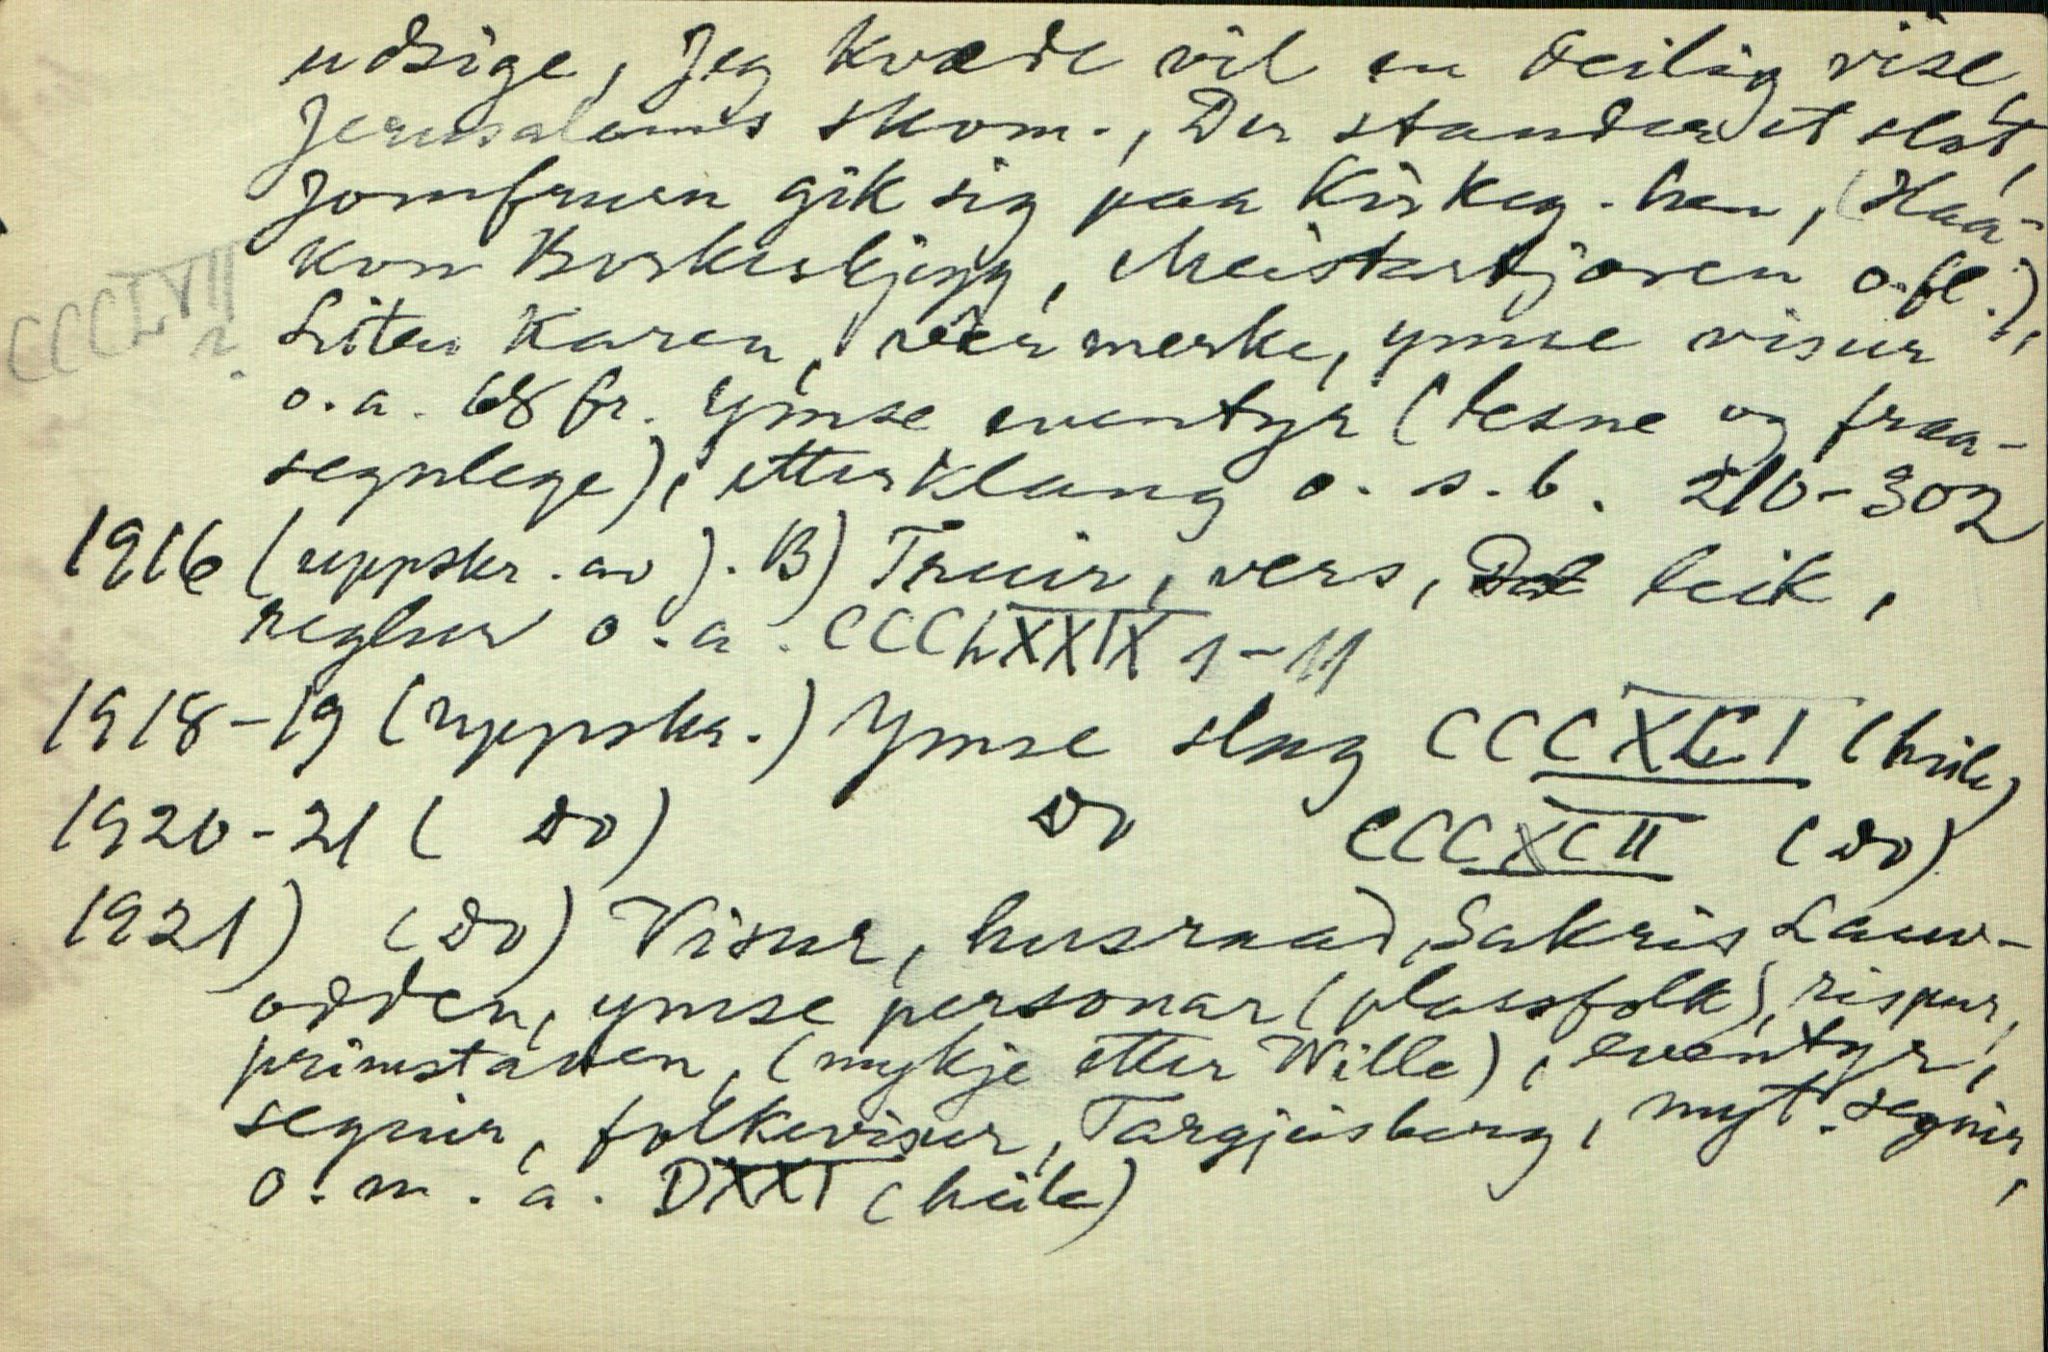 udsige, Jeg kvæde vil en deilig vise,
Jerusalems skom., Der stander et slot,
Jomfruen gik sig paa Kirkeg. hen, (Haa-
kon Borkuskjegg, Meistartjoven o.fl.),
CCCLVII
?
Liten Karen, veermerke, ymse visur
o.a. 68 fr. Ymse eventyr (tesne og fraa-
segnlege), etterklang o.s.b. 210-302
1916 (uppskr. av J. B) Truir, vers, leik,
reglur o.a. CCCLXXIX 1-11
1918-19 (uppskr.) Ymse slag CCCXCI (heile)
1920-21 (Do) Do CCCXCII (Do)
1921) (Do) Visur, husraad, Sakris Lauv-
odden, ymse personar (plassfolk), rispur,
primstaven, (mykje etter Wille), eventyr,
segnir, folkevisur, Targjeisberg, myt. segnir,
o.m.a. DXXI (heile)